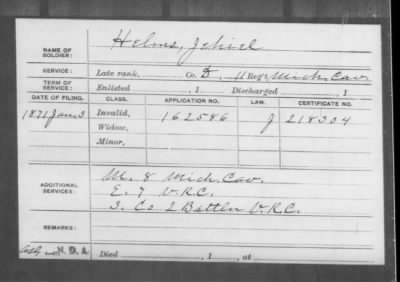 NAME OF SOLDIER: Helms, Jehiel
SERVICE: Late rank, Co. D, 11 Reg't Mich. Cav.
TERM OF SERVICE: Enlisted , 1 Discharged , 1
DATE OF FILING. CLASS. APPLICATION NO. LAW. CERTIFICATE NO.
1871 Jan. 3 Invalid, 162586 J 218304
Widow,
Minor,
ADDITIONAL SERVICES: M. 8 Mich Cav.
E. 7 V.R.C.
3. Co 2 Battln V.R.C.
REMARKS:
H. D. A. Died , 1 , at